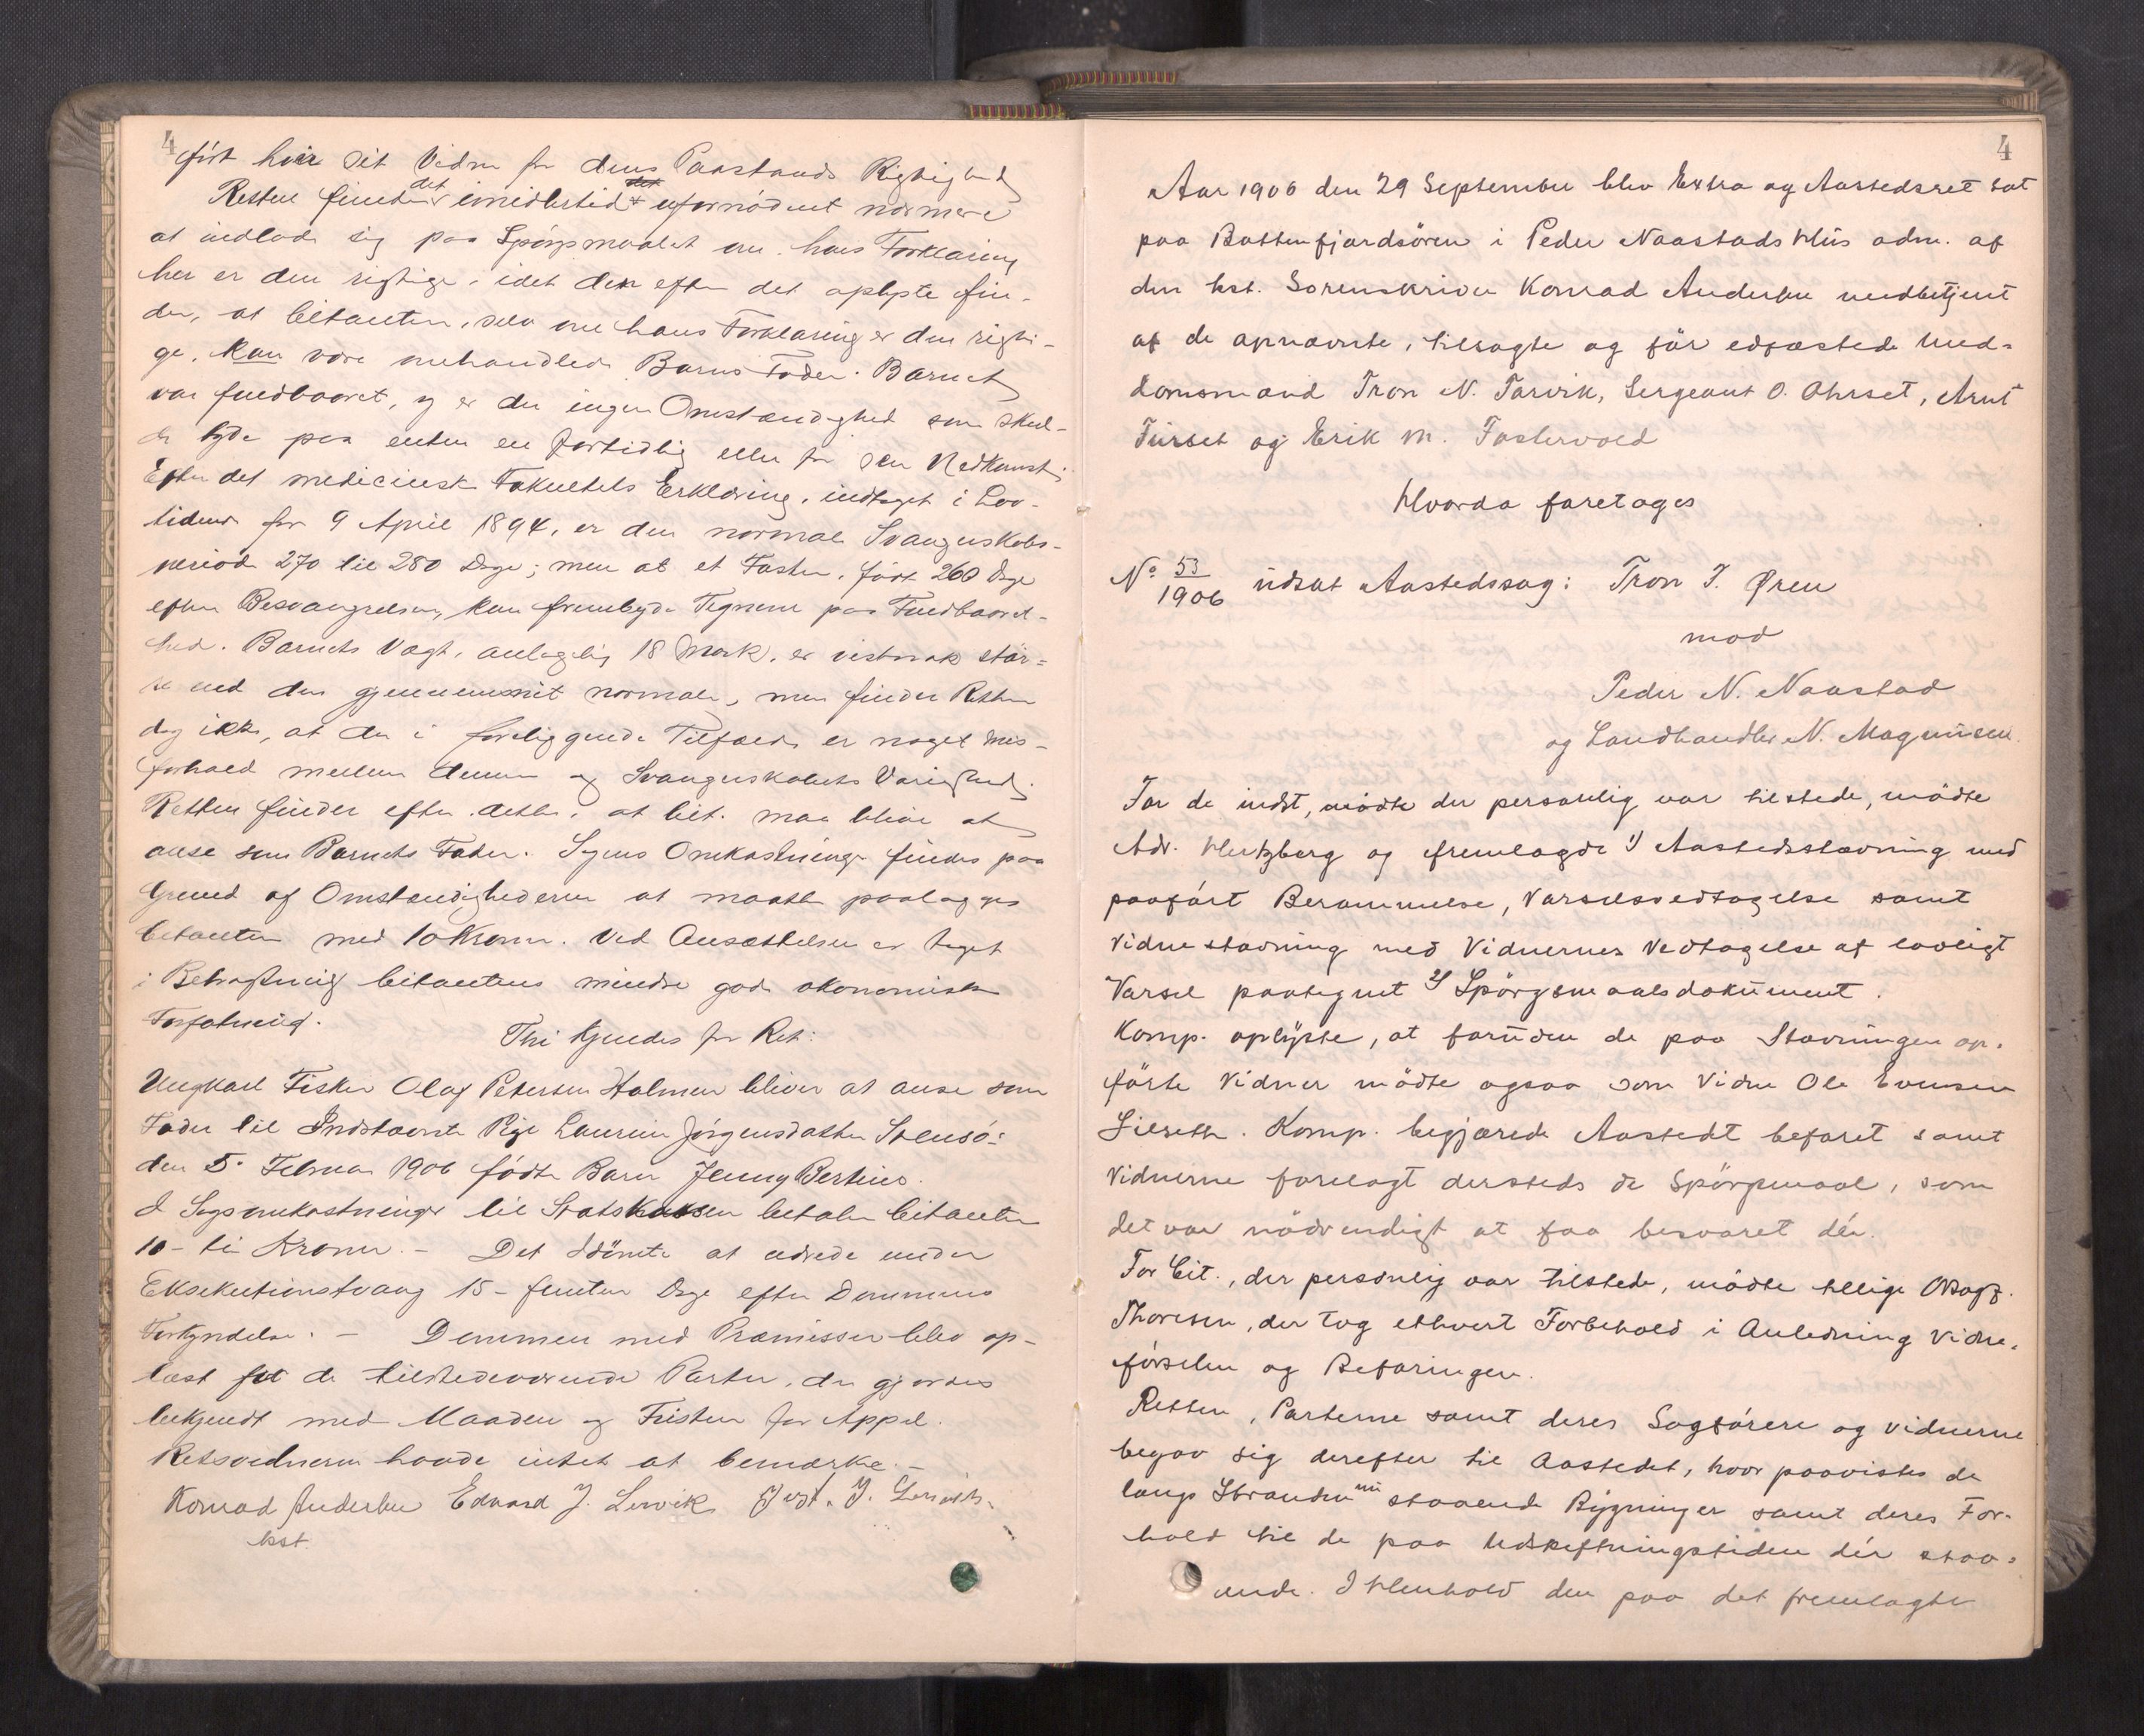 4
ført hver sit Vidne for dens Paastands Rigtighed
Retten finder det imidlertid ufornødent nærmere
at indlade sig paa Spørgsmaalet om hans Forklaring
her er den rigtige, idet den efter det oplyste fin-
der, at Citanten, selv om hans Forklaring er den rigti-
ge, kan være omhandlede Barns Fader. Barnet
var fuldbaaret, og er der ingen Omstændighed som skul-
de tyde paa enten en fortidlig eller for sen Nedkomst.
Efter det medicinske Fakultets Erklæring, indtaget i Lov-
tidende for 9 April 1894, er den normale Svangerskabs-
periode 270 til 280 Dage; men at et Foster, født 260 Dage
efter Besvangrelsen, kan frembyde Tegnene paa Fuldbaaret-
hed. Barnets Vægt, antagelig 18 Mark, er vistnok stør-
re end den gjennemsnit normale, men finder Retten
dog ikke, at der i foreliggende Tilfælde er noget Mis-
forhold mellem denne og Svangerskabets Varighed.
Retten finder efter dette, at Cit. maa blive at
anse som Barnets Fader. Sagens Omkostninger findes paa
Grund af Omstændighederne at maatte paalægges
Citanten med 10 Kroner. Ved Ansættelsen er taget
i Betragtning Citantens mindre gode økonomiske
Forfatning.
Thi kjendes for Ret:
Ungkarl Fisker Olaf Petersen Holmen bliver at anse som
Fader til Indstævnte Pige Laurine Jørgensdatter Stensø's
den 5. Februar 1906 fødte Barn Jenny Bertine.
I Sagsomkostninger til Statskassen betaler Citanten
10 - ti Kroner. - Det Idømte at udrede under
Eksekutionstvang 15 - femten Dage efter Dommens
Forkyndelse. - Dommen med Præmisser blev op-
læst for de tilstedeværende Parter, der gjordes
bekjendt med Maaden og Fristen for Appel.
Retsvidnerne havde intet at bemærke. -
Konrad Anderssen Edvard J. Lervik
kst.
4
Aar 1906 den 29 September blev Extra og Aastedsret sat
paa Battenfjordsøren i Peder Naastads Hus adm. af
den kst. Sorenskriver Konrad Anderssen medbetjent
af de opnævnte, tilsagte og før edfæstede Med-
domsmænd Tron N. Tarvik, Sergeant O. Ohrset, Arnt
Furset og Erik M. Fostervold
Hvorda foretoges
No 53/1906 udsat Aastedssag: Tron J. Øren
mod
Peder N. Naastad
og Landhandler N. Magnusen.
For de indst, mødte der personlig var tilstede, mødte
Adv. Hertzberg og fremlagde 1) Aastedsstævning med
paaført Berammelse, Varselsvedtagelse samt
Vidnestævning med Vidnernes Vedtagelse af lovligt
Varsel paategnet 2) Spørgsmaalsdokument.
Komp. oplyste, at foruden de paa Stævningen op-
førte Vidner mødte ogsaa som Vidne Ole Evensen
Silseth. Komp. begjærede Aastedt befaret samt
Vidnerne forelagt dersteds de Spørgsmaal, som
det var nødvendigt at faa besvaret dér.
For Cit., der personlig var tilstede, mødte tillige Oksagf.
Thoresen, der tog ethvert Forbehold i Anledning Vidne-
førselen og Befaringen.
Retten, Parterne samt deres Sagførere og Vidnerne
begav sig derefter til Aastedet, hvor paavistes de
langs Stranden nu staaende Bygninger samt deres For-
hold til de paa Udskiftningstiden dér staa-
ende. I Henhold den paa det fremlagte